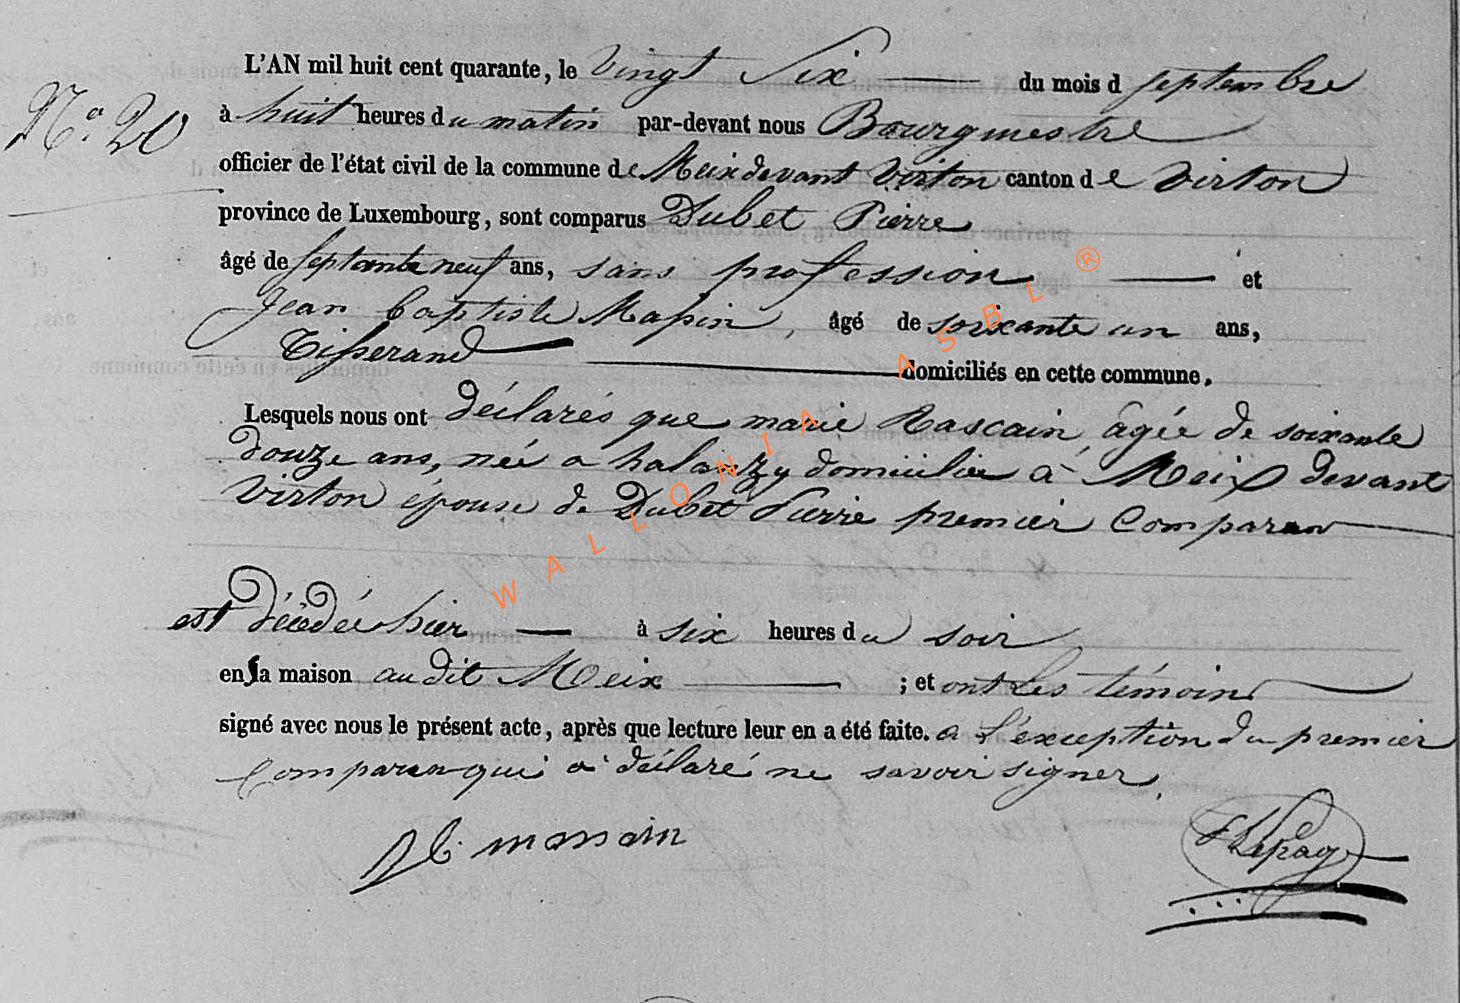 L'AN mil huit cent quarante, le vingt Six du mois d septembre
No. 20
à huit heures du matin par-devant nous Bourgmestre
officier de l'état civil de la commune de Meix devant Virton canton de Virton
province de Luxembourg, sont comparus Dubet Pierre
âgé de septante neuf ans, sans profession et
Jean Baptiste Massin, âgé de soixante un ans,
Tisserand domiciliés en cette commune.
Lesquels nous ont déclarés que marie Rascain agée de soixante
douze ans, née a halanzy domiciliée à Meix devant
Virton épouse de Dubet Pierre premier Comparan
est décédée hier à six heures du soir
en sa maison audit Meix ; et ont Les témoins
signé avec nous le présent acte, après que lecture leur en a été faite. a L'exception du premier
Comparan qui a déclaré ne savoir signer.
massin
F Lepage
WALLONIA ASBL ®